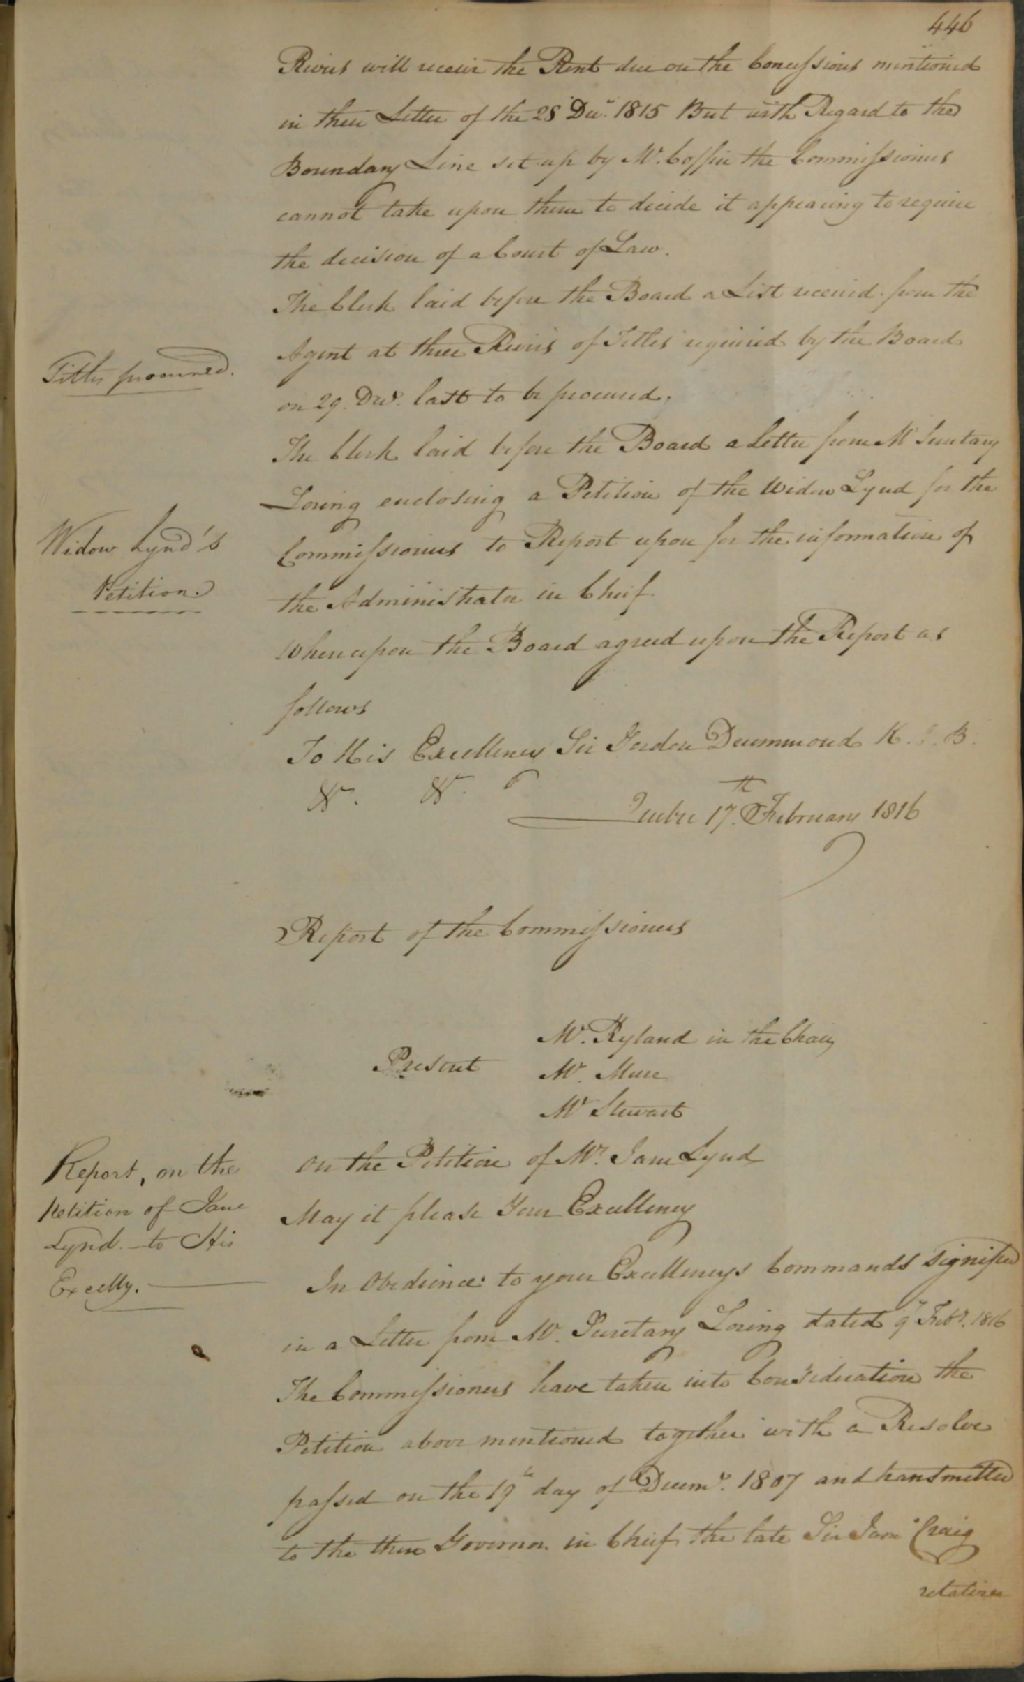 446
Rivers will receive the Rent due on the Concessions mentioned
in their Letter of the 28 Decr. 1815 But with Regard to the
Boundary Line set up by Mr. Coffin the Commissioners
cannot take upon them to decide it appearing to require
the decision of a Court of Law.
The Clerk laid before the Board a List received from the
Agent at three Rivers of Titles required by the Board
on 29. Decr. last to be procured.
Titles procured.
The Clerk laid before the Board a Letter from Mr Secretary
Loring enclosing a Petition of the Widow Lynd for the
Commissioners to Report upon for the information of
the Administrator in Chief.
Widow Lynd's
Petition
Whereupon the Board agreed upon the Report as
follows
To His Excellency Sir Gordon Drummond K. C. B.
&c. &c.
Quebec 17.th February 1816
Report of the Commissioners
Present
Mr. Ryland in the Chair
Mr. Mure
Mr Stewart
on the Petition of Mrs. Jane Lynd
Report, on the
Petition of Jane
Lynd. to His
Excelly.
May it please Your Excellency
In Obedience to your Excellencys Commands signified
in a Letter from Mr. Secretary Loring dated 9th Feby. 1816
The Commissioners have taken into Consideration the
Petition above mentioned together with a Resolve
passed on the 19th day of Decemr. 1807 and transmitted
to the then Governor in Chief the late Sir Jams Craig
relative